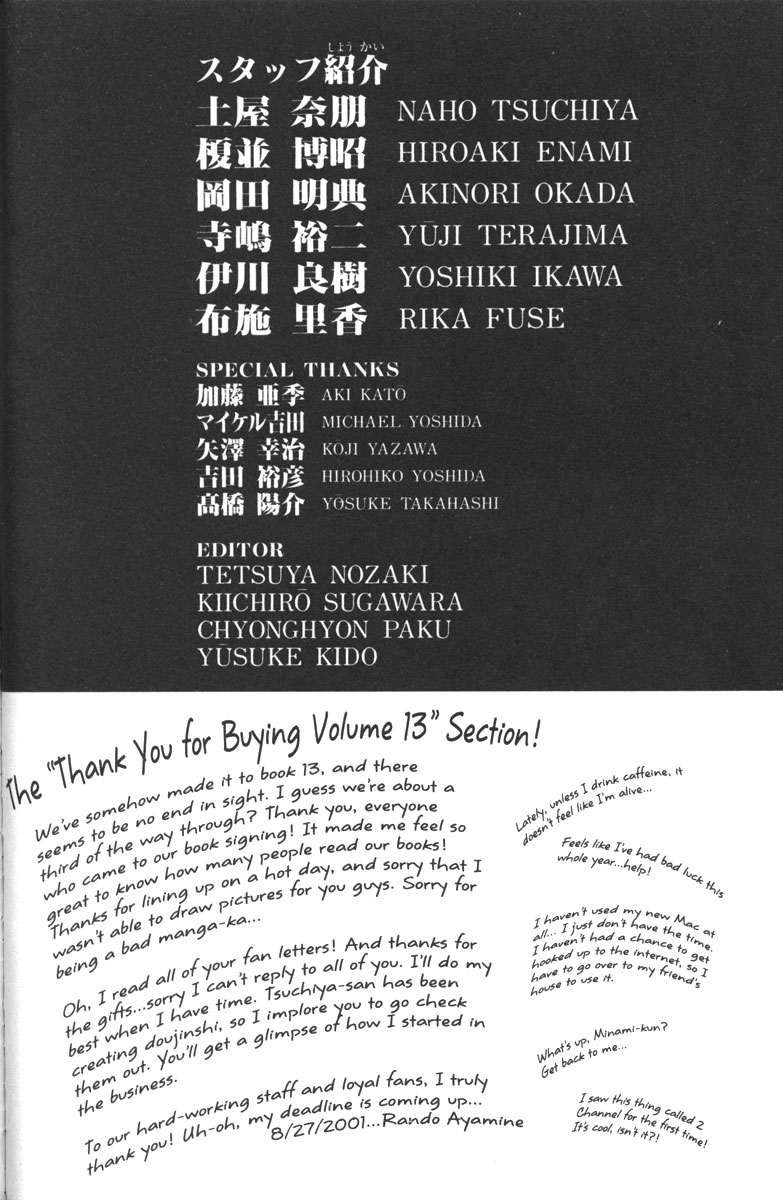 しょうかい
スタッフ紹介
土屋 奈朋 NAHO TSUCHIYA
榎並 博昭 HIROAKI ENAMI
岡田 明典 AKINORI OKADA
寺嶋 裕二 YŪJI TERAJIMA
伊川 良樹 YOSHIKI IKAWA
布施 里香 RIKA FUSE
SPECIAL THANKS
加藤 亜季 AKI KATŌ
マイケル吉田 MICHAEL YOSHIDA
矢澤 幸治 KŌJI YAZAWA
吉田 裕彦 HIROHIKO YOSHIDA
髙橋 陽介 YŌSUKE TAKAHASHI
EDITOR
TETSUYA NOZAKI
KIICHIRŌ SUGAWARA
CHYONGHYON PAKU
YŪSUKE KIDO
The "Thank You for Buying Volume 13" Section!
We've somehow made it to book 13, and there
seems to be no end in sight. I guess we're about a
third of the way through? Thank you, everyone
who came to our book signing! It made me feel so
great to know how many people read our books!
Thanks for lining up on a hot day, and sorry that I
wasn't able to draw pictures for you guys. Sorry for
being a bad manga-ka...
Oh, I read all of your fan letters! And thanks for
the gifts...sorry I can't reply to all of you. I'll do my
best when I have time. Tsuchiya-san has been
creating doujinshi, so I implore you to go check
them out. You'll get a glimpse of how I started in
the business.
To our hard-working staff and loyal fans, I truly
thank you! Uh-oh, my deadline is coming up...
8/27/2001...Rando Ayamine
Lately, unless I drink caffeine, it
doesn't feel like I'm alive...
Feels like I've had bad luck this
whole year...help!
I haven't used my new Mac at
all... I just don't have the time.
I haven't had a chance to get
hooked up to the internet, so I
have to go over to my friend's
house to use it.
What's up, Minami-kun?
Get back to me...
I saw this thing called 2
Channel for the first time!
It's cool, isn't it?!